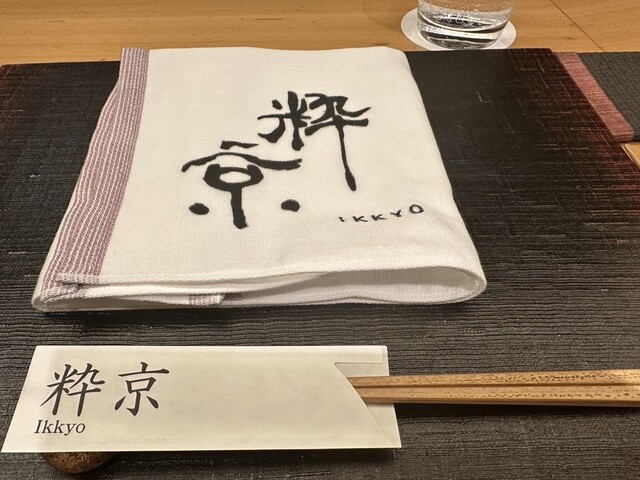 粋
京
IKKYO
粋京
Ikkyo